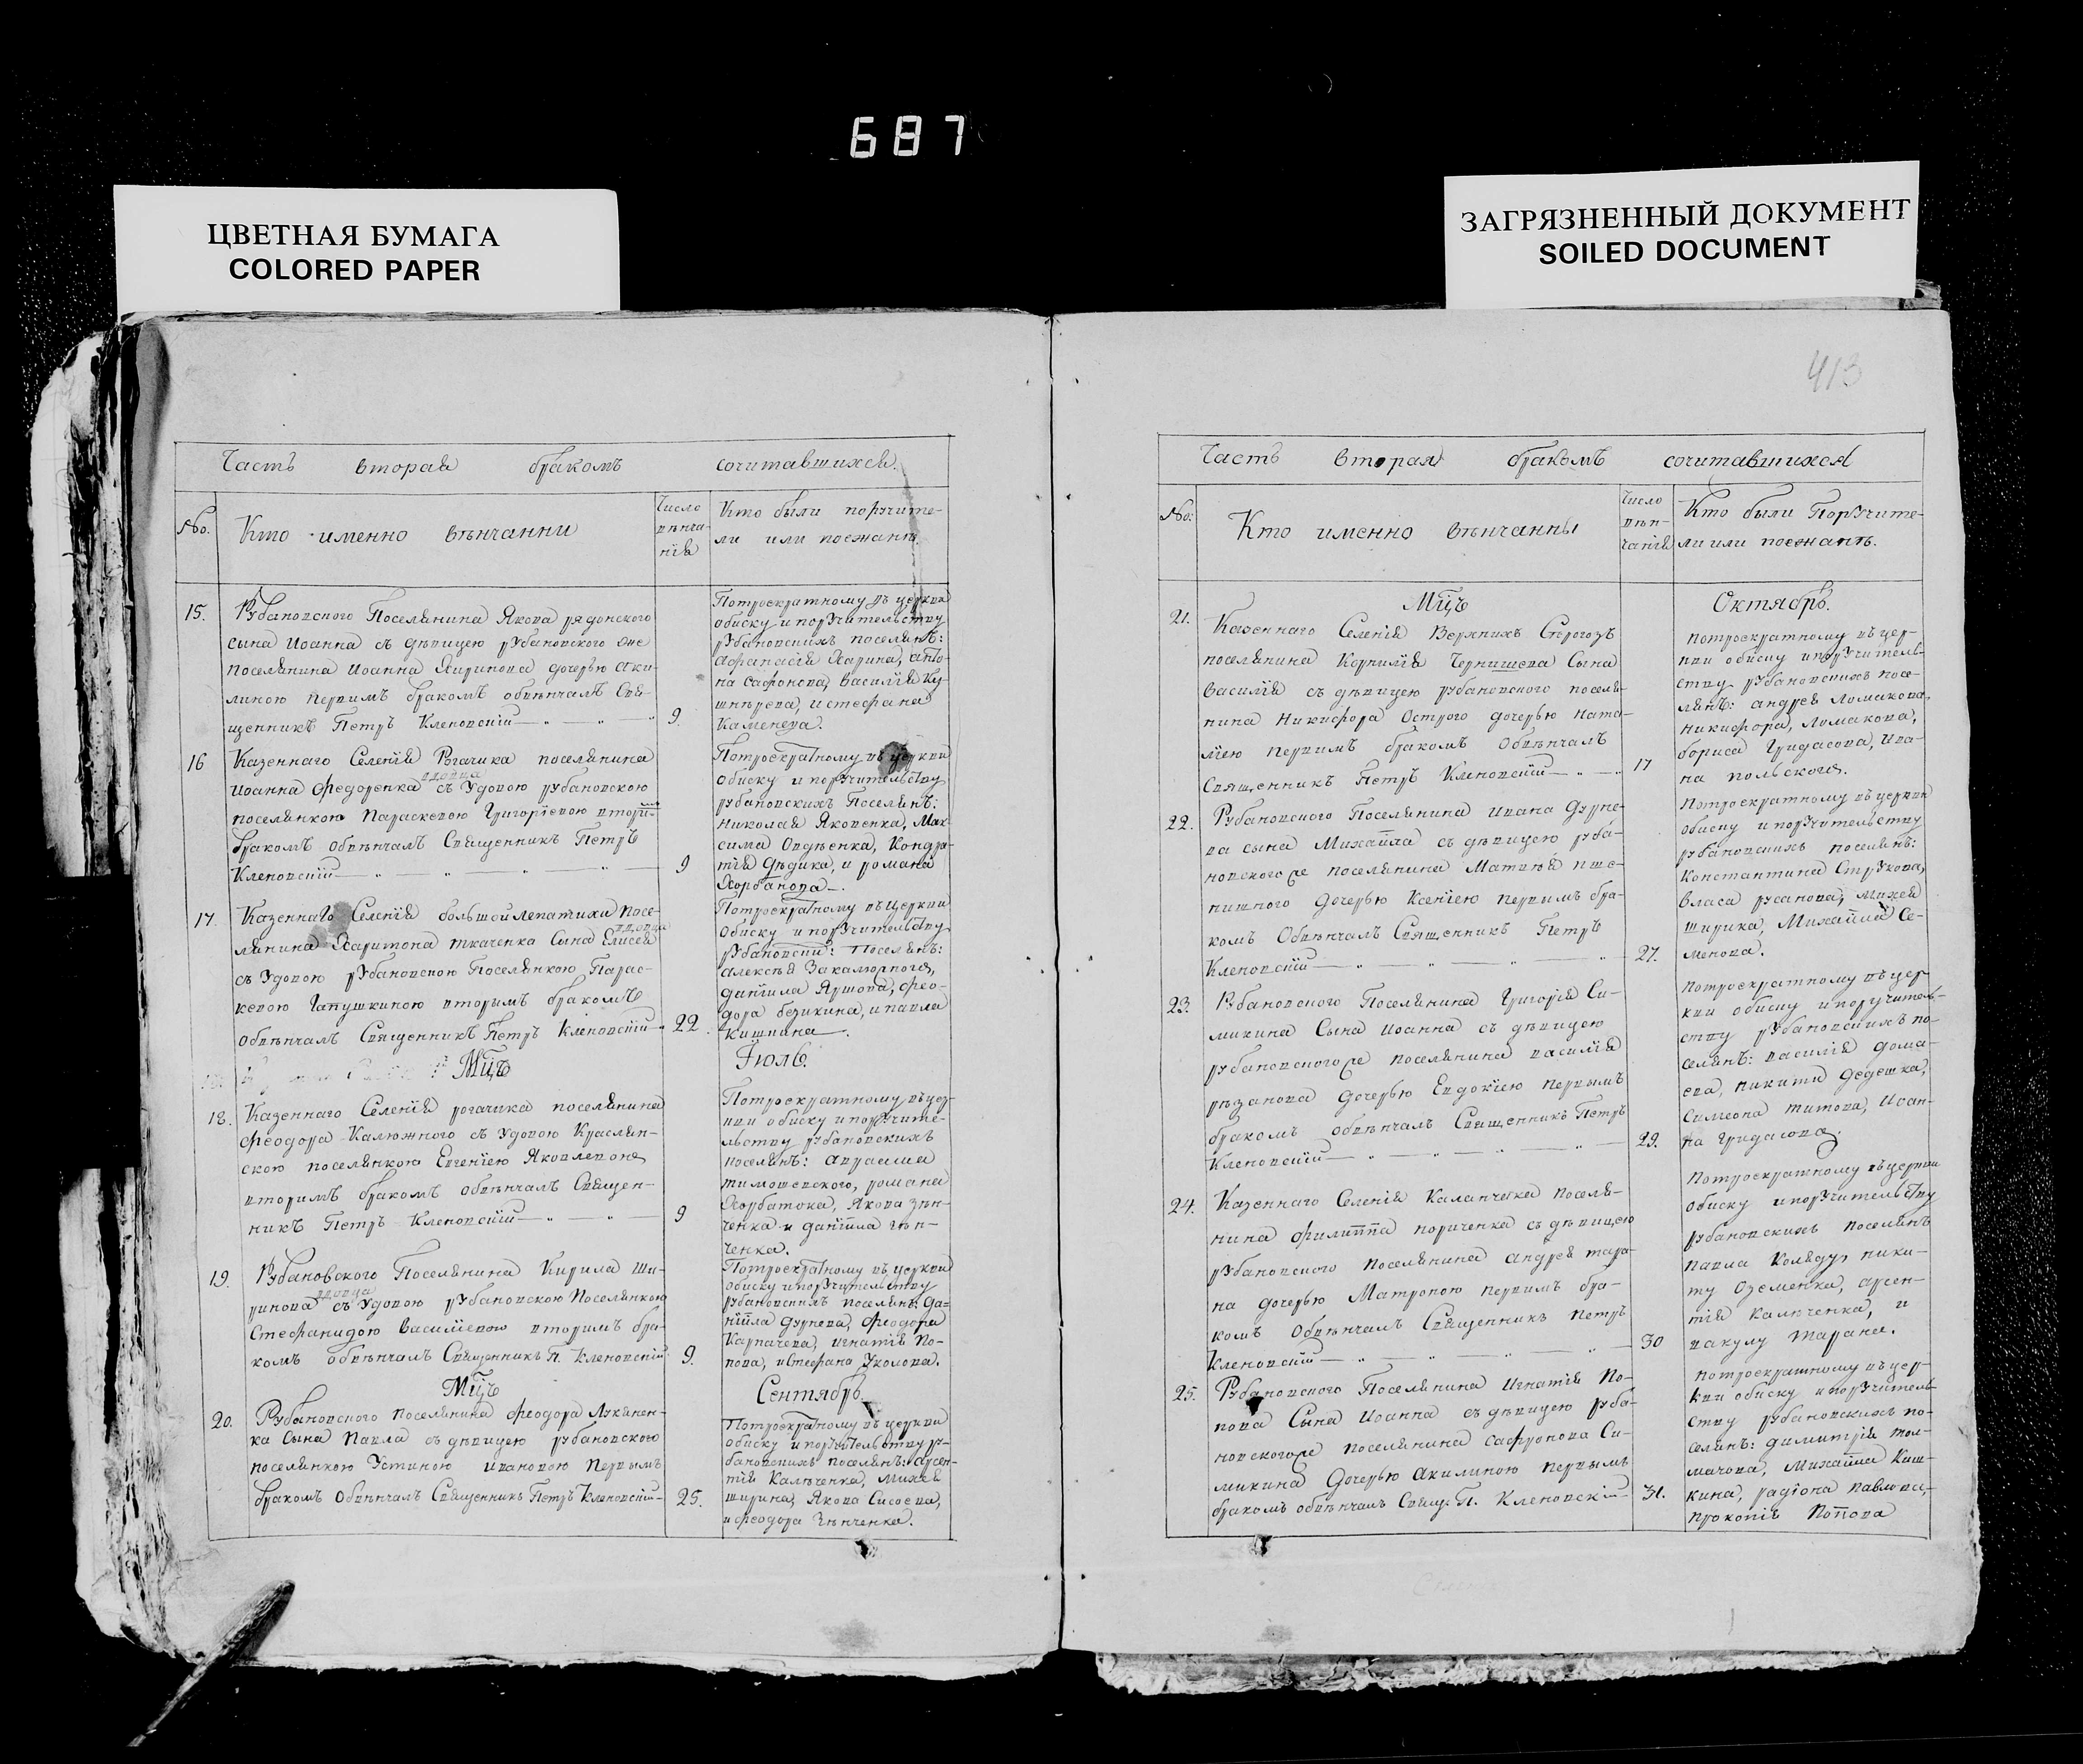 687
ЦВЕТНАЯ БУМАГА
COLORED PAPER
ЗАГРЯЗНЕННЫЙ ДОКУМЕНТ
SOILED DOCUMENT
413
Часть вторая бракомъ сочитавшихся.
No. Кто именно вѣнчанни
Число вѣнча-нія
Кто были поручите-
ли или поезжанѣ
15. Рубановского Поселянина Якова
сына Иоанна съ дѣвицею рубановского же
поселянина Иоанна дочерью Аки-
линою первимъ бракомъ обвѣнчалъ Свя-
щенникъ Петръ Кленовскій 9.
Потроекратному въ церкви
обиску и поручительству
рубановскихъ поселянъ:
Афанасія Харина, анто-
на Сафонова, Василія Ку-
шнѣрева, и стефана
Каменева.
16 Казеннаго Селенія Рогачика поселянина
вдовца
Иоанна Федоренка съ Удовою рубановскою
поселянкою Параскевою Григоріевою вторимъ
бракомъ обвѣнчалъ Священникъ Петръ
Кленовскій 9
Потроекратному въ церкви
Обиску и поручительству
рубановскихъ Поселянъ:
Николая Яковенка, Мак-
сима Овдѣенка, Кондра-
тія Дѣдика, и романа
Хорбанова.
17. Казеннаго Селенія большой лепатихи посе-
вдовца
лянина Харитона ткаченка Сына Елисея
съ Удовою рубановскою Поселянкою Парас-
кевою Гапушкиною вторымъ бракомъ
обвѣнчалъ Священникъ Петръ Кленовскій 22.
Потроекратному въ церкви
Обиску и поручительству
рубановски: Поселянъ:
Алексѣя Закалюжного,
даніила Яршова, фео-
дора безикина, и павла
Кишкина.
Мцъ Іюль.
18. Казеннаго Селенія рогачика поселянина
феодора Калюжного съ Удовою Краслян-
скою поселянкою Евгеніею Яковлевою
вторимъ бракомъ обвѣнчалъ Священ-
никъ Петръ Кленовскій 9
Потроекратному въ цер-
кви обиску и поручите-
льству рубановскихъ
поселянъ: авраама
тимошевского, романа
Хорбатока, Якова зѣн-
ченка и даніила гѣн-
ченка.
19. Рубановского Поселянина Кирила Ши-
вдовца
ринова съ Удовою рубановскою Поселянкою
Стефанидою Василіевою вторимъ бра-
комъ обвѣнчалъ Священникъ П. Кленовскій 9.
Потроекратному въ церкви
обиску и поручительству
рубановскихъ поселянъ: Да-
ніила дурнева, феодора
Карпачева, игнатія По-
пова, и стефана Уколова.
Мцъ Сентябрь.
20. Рубановского поселянина феодора Лукянен-
ка Сына Павла съ дѣвицею рубановского
поселянкою Устиною ивановою Первымъ
бракомъ Обвѣнчалъ Священникъ Петръ Кленовскій 25.
Потроекратному въ церкви
обиску и поручительству ру-
бановскихъ поселянъ: арсен-
тія Калюченка, михея
ширина, Якова Сисоева,
и феодора Зѣнченка.
Часть вторая бракомъ сочитавшихся
No: Кто именно вѣнчанны
Число вѣн-чанія
Кто были Поручите-
ли или поезжанѣ.
Мцъ Октябрь.
21. Казеннаго Селенія Верхнихъ Сѣрогозъ
поселянина Корнилія Чернишева Сына
василія съ дѣвицею рубановского поселя-
нина Никифора Острого дочерью Ната-
ліею первимъ бракомъ Обвѣнчалъ
Священникъ Петръ Кленовскій 17
потроекратному въ цер-
кви обиску и поручитель-
ству рубановскихъ посе-
лянъ: андрея Ломакова,
никифора, Ломакова,
бориса Гридасова, ива-
на польского.
22. Рубановского Поселянина ивана дурне-
ва сына Михаила съ дѣвицею руба-
новского же поселянина Матвѣя пше-
нишного дочерью Ксеніею первимъ бра-
комъ Обвѣнчалъ Священникъ Петръ
Кленовскій 27.
Потроекратному въ церкви
обиску и поручительству
рубановскихъ поселянъ:
Константина Струкова,
власа русанова, михея
Ширина, Михаила Се-
менова.
23. Рубановского Поселянина Григорія Си-
микина Сына Иоанна съ дѣвицею
рубановского же поселянина василія
рѣзанова дочерью Евдокіею первымъ
бракомъ обвѣнчалъ Священникъ Петръ
Кленовскій 29.
потроекратному въ цер
кви обиску и поручитель-
ству рубановскихъ по-
селянъ: василія дома-
ева, никити дедешка,
Симеона титова, Иоан-
на Гридасова.
24. Казеннаго Селенія Каланчака поселя-
нина филиппа пориченка съ дѣвицею
рубановского поселянина андрея тара-
на дочерью Матроною первимъ бра-
комъ Обвѣнчалъ Священникъ петръ
Кленовскій 30
Потроекратному въ церкви
обиску и поручительству
рубановскихъ поселянъ
павла Коляду, ники-
ту Оземенка, арсен-
тія Калюченка, и
вакулу тарана.
25. Рубановского Поселянина Игнатія По-
пова Сына Иоанна съ дѣвицею руба-
новского же поселянина сафронова Си-
микина Дочерью акилиною первымъ
бракомъ обвѣнчалъ Свящ: П. Кленовскій 31.
потроекратному въ цер-
кви обиску и поручитель
ству рубановскихъ по-
селянъ: димитрія тол-
мачова, Михаила Киш-
кина, радіона павлова,
прокопія Попова